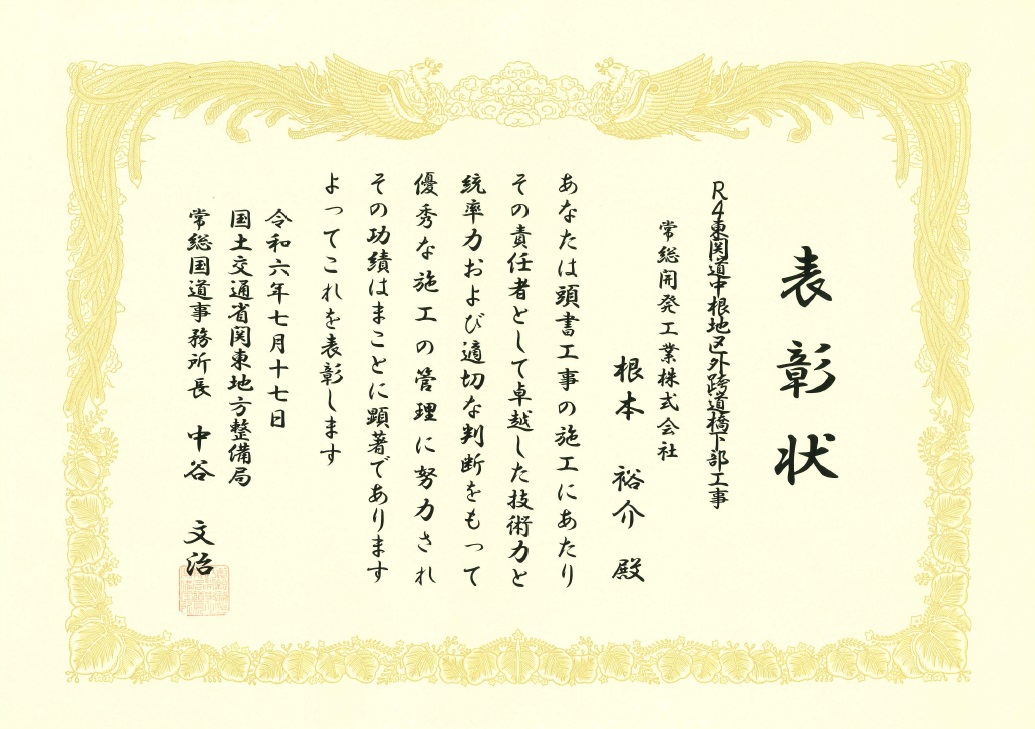 表彰状
R4東関道中根地区外跨道橋下部工事
常総開発工業株式会社
根本 裕介 殿
あなたは頭書工事の施工にあたり
その責任者として卓越した技術力と
統率力および適切な判断をもって
優秀な施工の管理に努力され
その功績はまことに顕著であります
よってこれを表彰します
令和六年七月十七日
国土交通省関東地方整備局
常総国道事務所長 中谷 文治